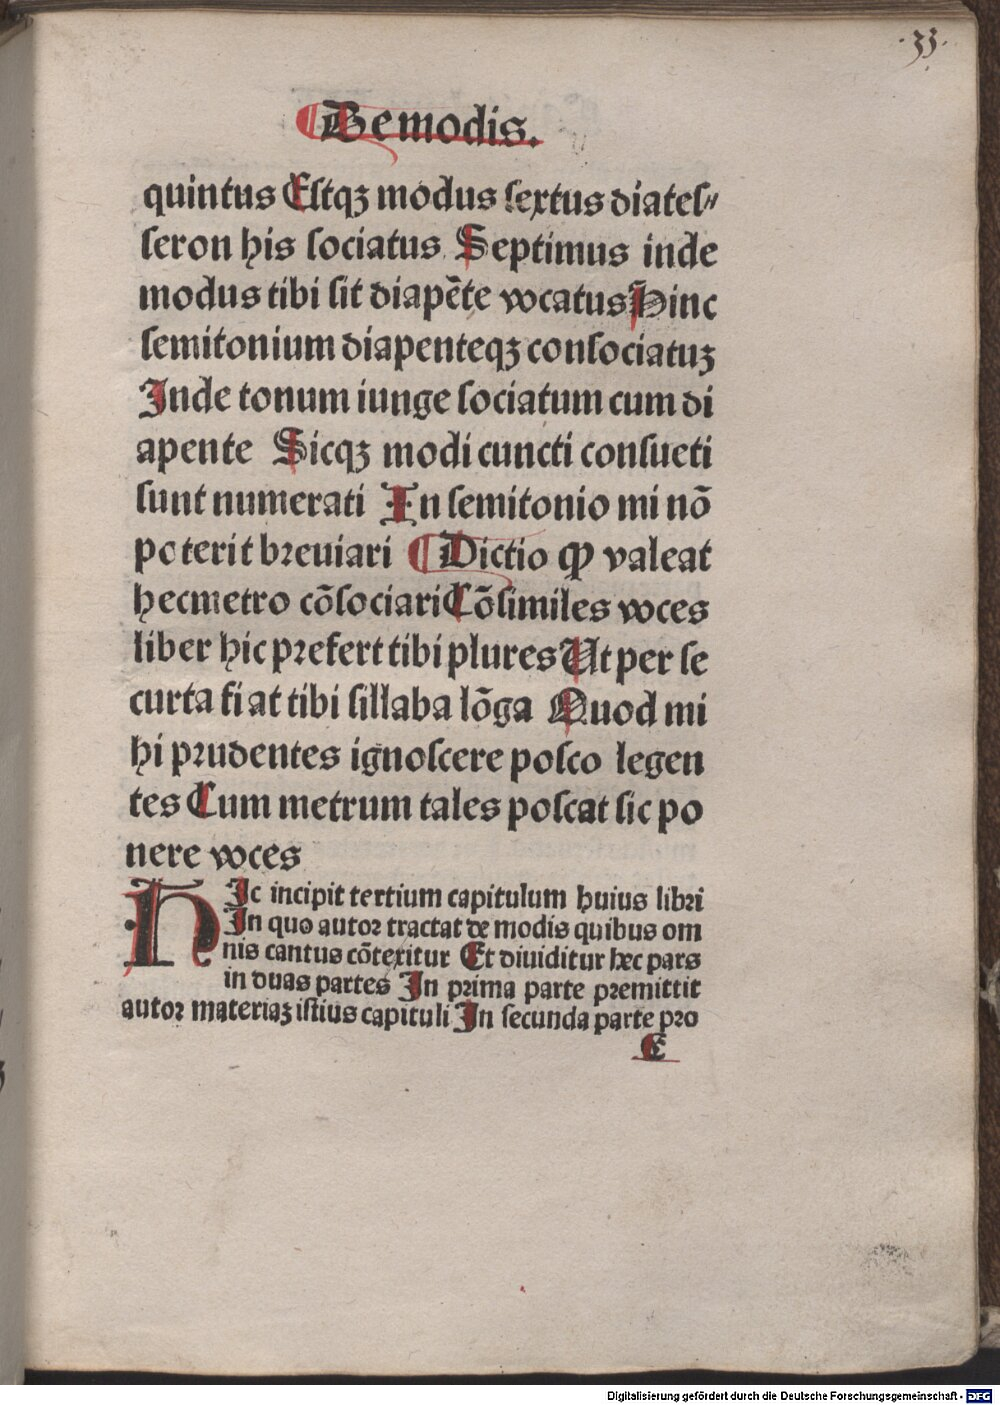 .33.
De modis.
quintus Eſtqꝫ modus ſextus diateſ⸗
ſeron his ſociatus Septimus inde
modus tibi ſit diapēte vocatus Hinc
ſemitonium diapenteqꝫ conſociatuꝫ
Inde tonum iunge ſociatum cum di
apente Sicqꝫ modi cuncti conſueti
ſunt numerati In ſemitonio mi nō
poterit breuiari Dictio ꝙ valeat
hecmetro cōſociari Cōſimiles voces
liber hic prefert tibi plures Ut per ſe
curta fiat tibi ſillaba lōga Quod mi
hi prudentes ignoſcere poſco legen
tes Cum metrum tales poſcat ſic po
nere voces
HIc incipit tertium capitulum huius libri
In quo autor tractat de modis quibus om
nis cantus cōtexitur Et diuiditur hec pars
in duas partes In prima parte premittit
autor materiaꝫ iſtius capituli In ſecunda parte pro
E
Digitalisierung gefördert durch die Deutsche Forschungsgemeinschaft - DFG